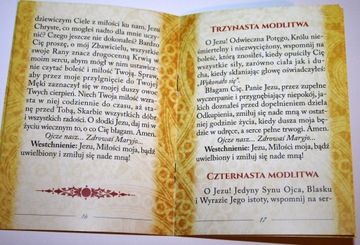 dziewiczym Ciele z miłości ku nam. Jezu
Chryste, co mogłeś nadto dla mnie uczy-
nić? Czego jeszcze nie dokonałeś? Bardzo
Cię proszę, o mój Zbawicielu, wszystkie
swoje Rany znacz drogocenną Krwią w
moim sercu, abym mógł w nim ustawicz-
nie czytać boleść i miłość Twoją. Spraw,
aby przez moje przylgnięcie do Twojej
Męki zaznaczył się w mojej duszy owoc
Twych cierpień. Niech Twoja miłość wzra-
sta w niej codziennie do czasu, aż sta-
nę przed Tobą, Skarbie wszystkich dóbr
i wszystkich radości. O słodki Jezu, daj mi w
życiu wiecznym to, o co Cię błagam. Amen.
Ojcze nasz... Zdrowaś Maryjo...
Westchnienie: Jezu, Miłości moja, bądź
uwielbiony i zmiłuj się nade mną!
16
TRZYNASTA MODLITWA
O Jezu! Odwieczna Potęgo, Królu nie-
śmiertelny i niezwyciężony, wspomnij na
boleść, którą znosiłeś, kiedy opuściły Cię
wszystkie siły, zarówno ciała jak i du-
cha, kiedy skłaniając głowę oświadczyłeś:
"Wykonało się".
Błagam Cię, Panie Jezu, przez zupełne
wyczerpanie i przygnębiający niepokój, ja-
kich doznałeś przed dopełnieniem dzieła
Odkupienia, zmiłuj się nade mną w ostat-
niej godzinie życia, kiedy dusza moja bę-
dzie w udręce, a serce pełne trwogi. Amen.
Ojcze nasz... Zdrowaś Maryjo...
Westchnienie: Jezu, Miłości moja, bądź
uwielbiony i zmiłuj się nade mną!
CZTERNASTA MODLITWA
O Jezu! Jedyny Synu Ojca, Blasku
i Wyrazie Jego istoty, wspomnij na ser-
17